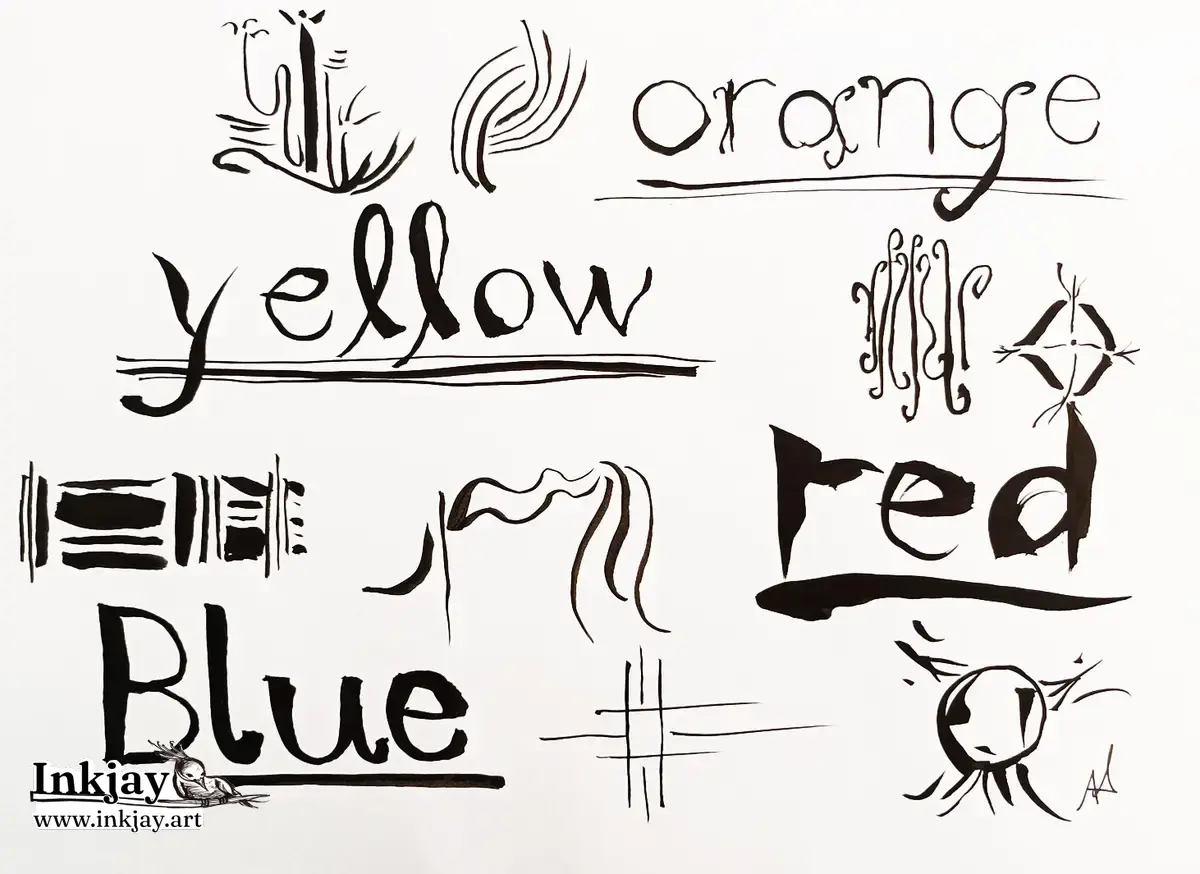 orange
yellow
red
Blue
Inkjay
www.inkjay.art